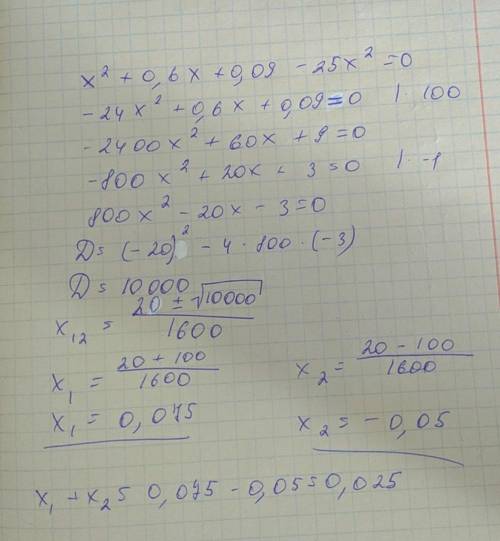 x² + 0,6x + 0,09 - 25x² = 0
-24x² + 0,6x + 0,09 = 0 | · 100
-2400x² + 60x + 9 = 0
-800x² + 20x + 3 = 0 | · -1
800x² - 20x - 3 = 0
D = (-20)² - 4 · 800 · (-3)
D = 10000
x₁₂ = (20 ± √10000) / 1600
x₁ = (20 + 100) / 1600 x₂ = (20 - 100) / 1600
x₁ = 0,075 x₂ = -0,05
x₁ + x₂ = 0,075 - 0,05 = 0,025